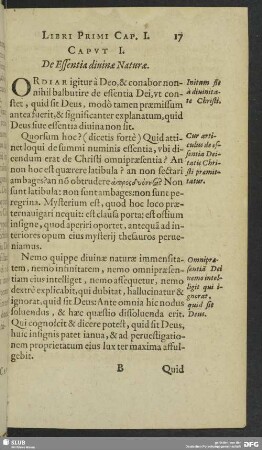 LIBRI PRIMI CAP. I. 17
CAPVT I.
De Essentia diuinæ Naturæ.
ORDIAR igitur à Deo, & conabor non-
nihil balbutire de essentia Dei, vt con-
stet, quid sit Deus, modò tamen præmissum
antea fuerit, & significanter explanatum, quid
Deus siue essentia diuina non sit.
Initum sit
à diuinita-
te Christi.
Quorsum hoc? (dicetis fortè) Quid atti-
net loqui de summi numinis essentia, vbi di-
cendum erat de Christi omnipræsentia? An
non hoc est quærere latibula? an non sectari
ambages? an nõ obtrudere Non
sunt latibula: non sunt ambages: non sunt pe-
regrina. Mysterium est, quod hoc loco præ-
ternauigari nequit: est clausa porta: est ostium
insigne, quod aperiri oportet, antequã ad in-
teriores opum eius mysterij thesauros perue-
niamus.
Cur arti-
culus de es-
sentia Dei-
tatis Chri-
sti præmit-
tatur.
Nemo quippe diuinæ naturæ immensita-
tem, nemo infinitatem, nemo omnipræsen-
tiam eius intelliget, nemo assequetur, nemo
dextrè explicabit, qui dubitat, hallucinatur &
ignorat, quid sit Deus: Ante omnia hic nodus
soluendus, & hæc quæstio dissoluenda erit.
Qui cognoscit & dicere potest, quid sit Deus,
huic insignis patet ianua, & ad peruestigatio-
nem proprietatum eius lux ter maxima afful-
gebit.
Omnipræ-
sentiã Dei
nemo intel-
ligit qui i-
gnorat,
quid sit
Deus.
B Quid
SLUB
DFG